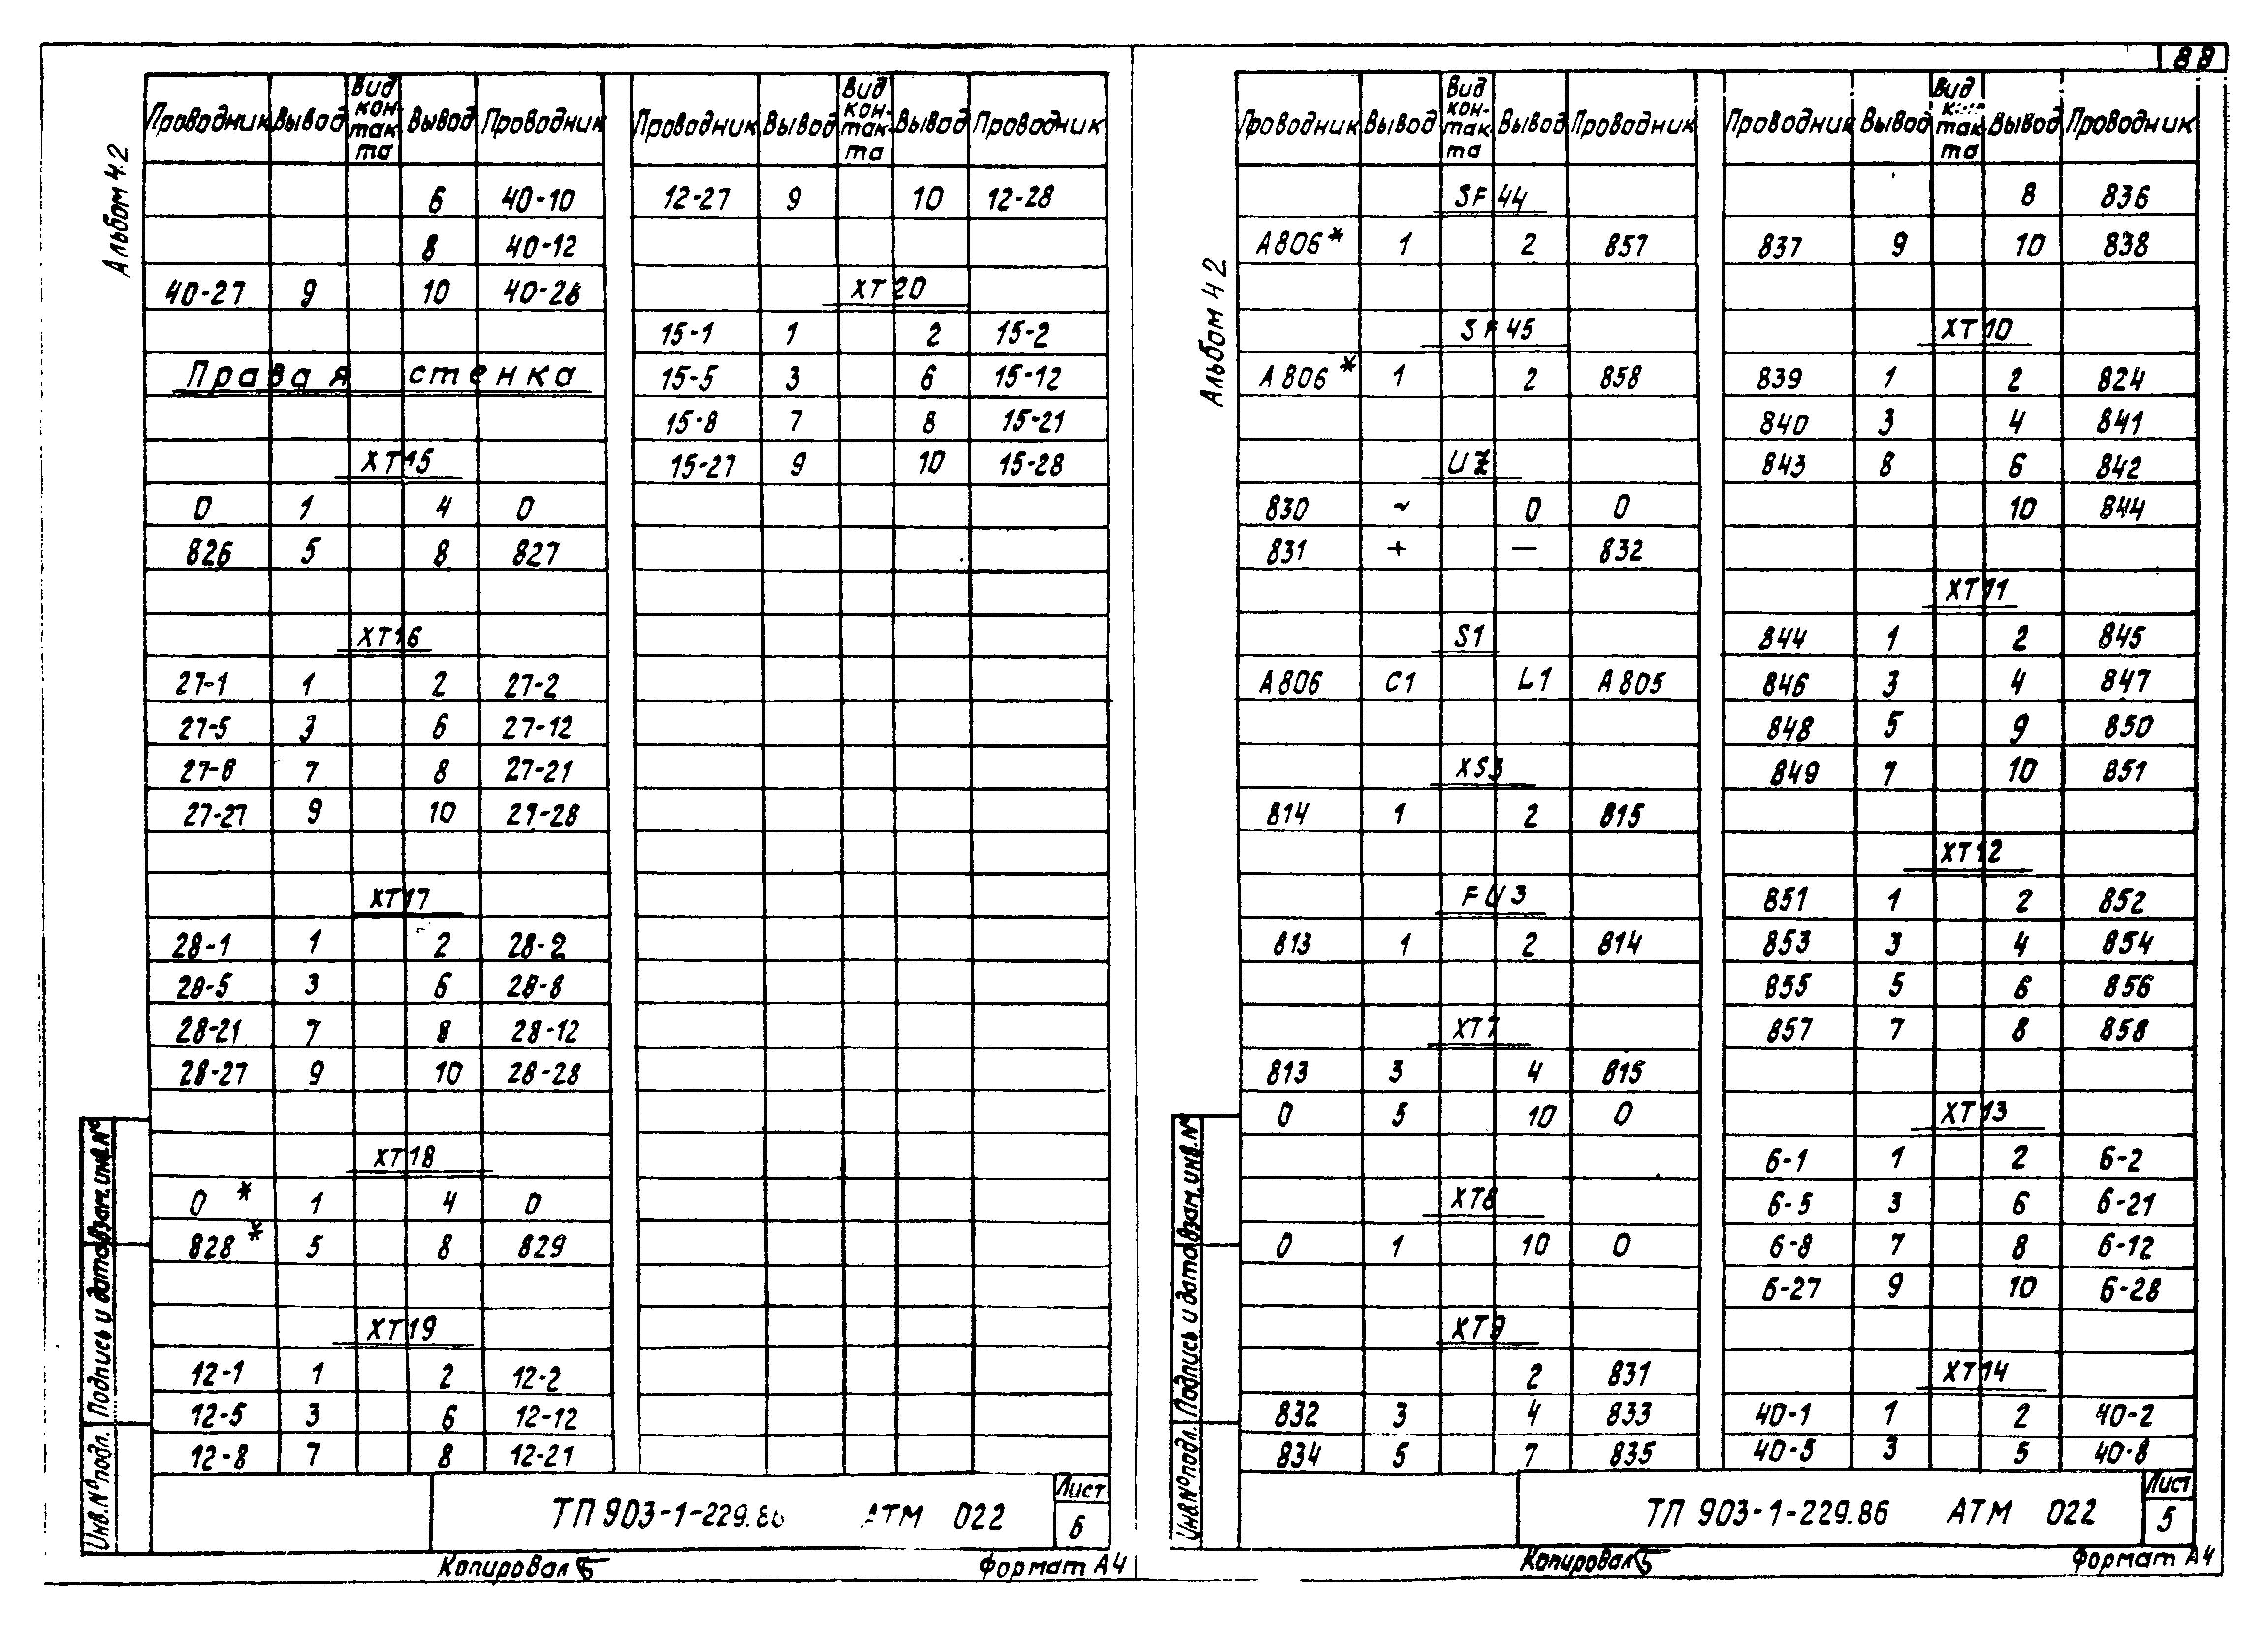 88
Альбом 4.2
Проводник Вывод Вид контакта Вывод Проводник
6 40-10
8 40-12
40-27 9 10 40-28
Правая стенка
XT15
0 1 4 0
826 5 8 827
XT16
27-1 1 2 27-2
27-5 3 6 27-12
27-8 7 8 27-21
27-27 9 10 27-28
XT17
28-1 1 2 28-2
28-5 3 6 28-8
28-21 7 8 28-12
28-27 9 10 28-28
XT18
0* 1 4 0
828* 5 8 829
XT19
12-1 1 2 12-2
12-5 3 6 12-12
12-8 7 8 12-21
Проводник Вывод Вид контакта Вывод Проводник
12-27 9 10 12-28
XT20
15-1 1 2 15-2
15-5 3 6 15-12
15-8 7 8 15-21
15-27 9 10 15-28
Взам. инв. №
Подпись и дата
Инв. № подл.
ТП 903-1-229.86 АТМ 022
Лист
6
Копировал
Формат А4
Альбом 4.2
Проводник Вывод Вид контакта Вывод Проводник
SF44
А806* 1 2 857
SF45
А806* 1 2 858
UZ
830 ~ 0 0
831 + — 832
S1
А806 C1 L1 А805
XS3
814 1 2 815
FU3
813 1 2 814
XT7
813 3 4 815
0 5 10 0
XT8
0 1 10 0
XT9
2 831
832 3 4 833
834 5 7 835
Проводник Вывод Вид контакта Вывод Проводник
8 836
837 9 10 838
XT10
839 1 2 824
840 3 4 841
843 8 6 842
10 844
XT11
844 1 2 845
846 3 4 847
848 5 9 850
849 7 10 851
XT12
851 1 2 852
853 3 4 854
855 5 6 856
857 7 8 858
XT13
6-1 1 2 6-2
6-5 3 6 6-21
6-8 7 8 6-12
6-27 9 10 6-28
XT14
40-1 1 2 40-2
40-5 3 5 40-8
Взам. инв. №
Подпись и дата
Инв. № подл.
ТП 903-1-229.86 АТМ 022
Лист
5
Копировал
Формат А4